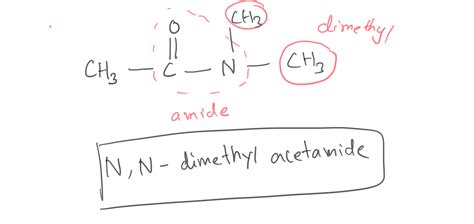 O
CH3
dimethyl
CH3 — C — N — CH3
amide
N, N - dimethyl acetamide